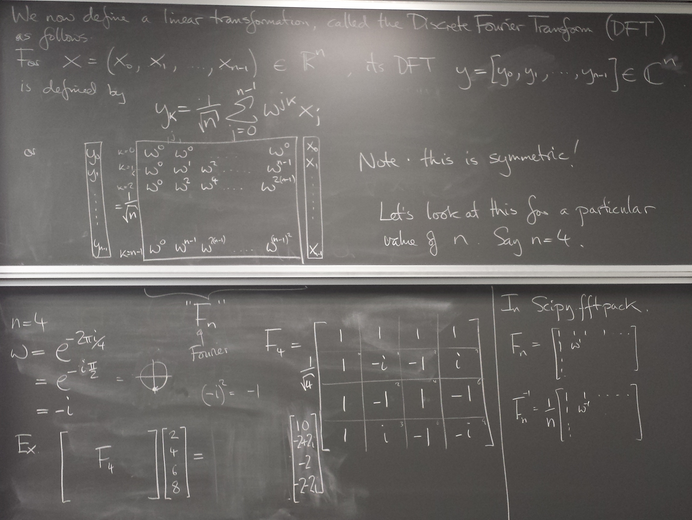 We now define a linear transformation, called the Discrete Fourier Transform (DFT)
as follows.
For x = (x₀, x₁, ..., xₙ₋₁) ∈ ℝⁿ, its DFT y = [y₀, y₁, ..., yₙ₋₁] ∈ ℂⁿ
is defined by
yₖ = 1/√n ∑_{j=0}^{n-1} ω^{jk} xⱼ
or
y₀ k=0 ω⁰ ω⁰ ..... ω⁰ x₀
y₁ ω⁰ ω¹ ω² .... ω^{n-1} x₁
k=2 ω⁰ ω² ω⁴ .... ω^{2(n-1)}
= 1/√n
yₙ₋₁ k=n-1 ω⁰ ω^{n-1} ω^{2(n-1)} .... ω^{(n-1)²}
Note: this is symmetric!
Let's look at this for a particular
value of n. Say n=4.
"Fₙ"
Fourier
n=4
ω = e^{-2πi/4}
= e^{-iπ/2} =
= -i
(-i)² = -1
F₄ = 1/√4
1 1 1 1
1 -i -1 i
1 -1 1 -1
1 i -1 -i
Ex
[ F₄ ] [2 4 6 8] = [10 -2+2i -2 -2-2i]
In Scipy fftpack.
Fₙ = [1 1 1 ....
1 ω¹
Fₙ⁻¹ = 1/n [1 1 .....